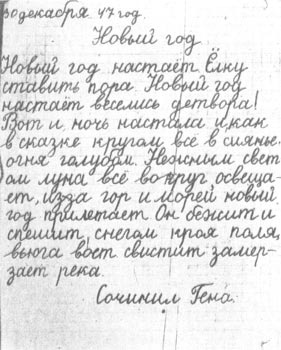 30 декабря 47 год.
Новый год
Новый год настаёт Ёлку
ставить пора Новый год
настаёт веселись детвора!
Вот и ночь настала и, как
в сказке кругом всё в сиянье.
огня голубом. Нежным свет
ом луна всё вокруг освеща-
ет, изза гор и морей новый
год прилетает Он бежит и
спешит, снегом кроя поля,
вьюга воет свистит замер-
зает река.
Сочинил Гена.